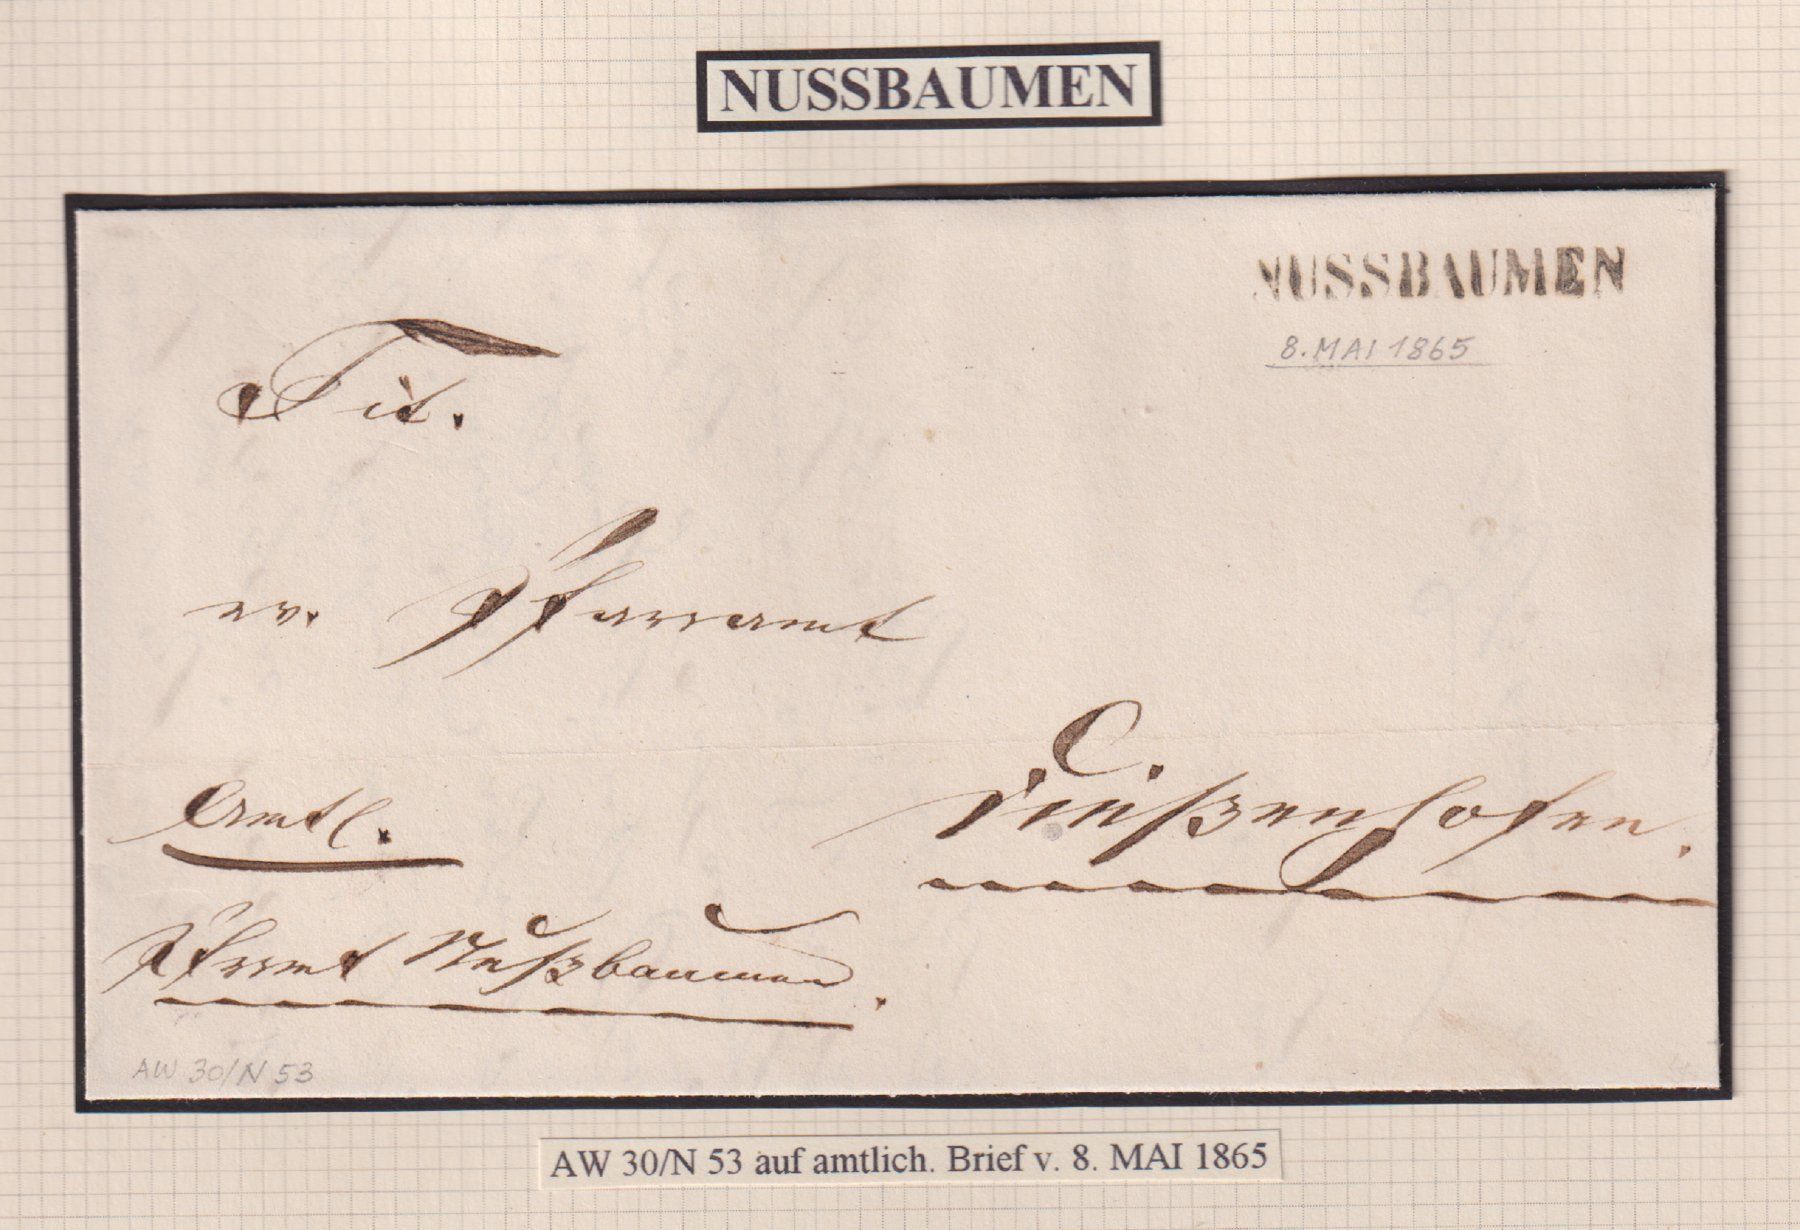 NUSSBAUMEN
NUSSBAUMEN
8. MAI 1865
Tit.
ev. Pfarramt
Dießenhofen.
Amtl.
Pfarramt Nußbaumen.
AW 30/N 53
AW 30/N 53 auf amtlich. Brief v. 8. MAI 1865